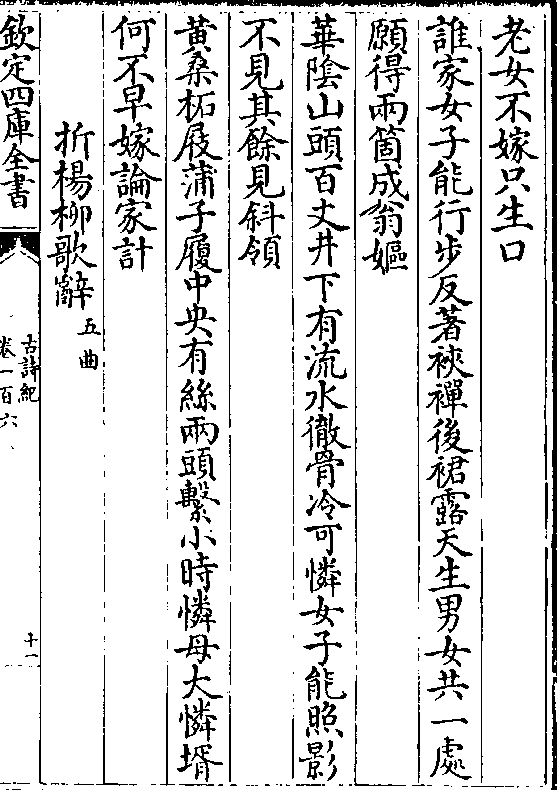 老女不嫁只生口
誰家女子能行步反著裌襌後裙露天生男女共一處
願得兩箇成翁嫗
華陰山頭百丈井下有流水徹骨冷可憐女子能照影
不見其餘見斜領
黄桑柘屐蒲子履中央有絲兩頭繫小時憐母大憐壻
何不早嫁論家計
折楊柳歌辭五曲
欽定四庫全書
古詩紀
卷一百六
十一